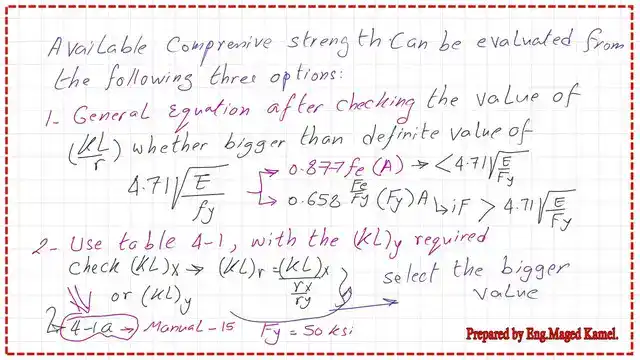 Available Compressive strength Can be evaluated from
the following three options:
1- General Equation after checking the value of
(KL/r) whether bigger than definite value of
4.71√(E/fy) → 0.877fe (A) → < 4.71√(E/Fy)
→ 0.658^(Fe/Fy) (Fy) A ↳ iF > 4.71√(E/Fy)
2- Use table 4-1, with the (KL)y required
check (KL)x → (KL)r = (KL)x / (rx/ry)
or (KL)y
select the bigger
value
4-1a → Manual-15 Fy = 50 ksi
Prepared by Eng.Maged Kamel.